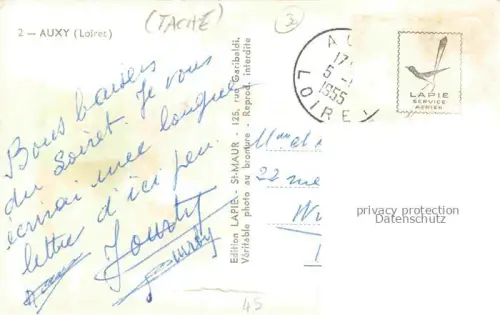 2 — AUXY (Loiret)
(TACHÉ)
Bons baisers
du Loiret. Je vous
écrirai une longue
lettre d'ici peu.
Edition LAPIE - St-MAUR - 125, rue Garibaldi.
Véritable photo au bromure - Reprod. interdite
A
17
5
1955
LOIRET
LAPIE
SERVICE
AERIEN
22 rue
privacy protection
Datenschutz
45